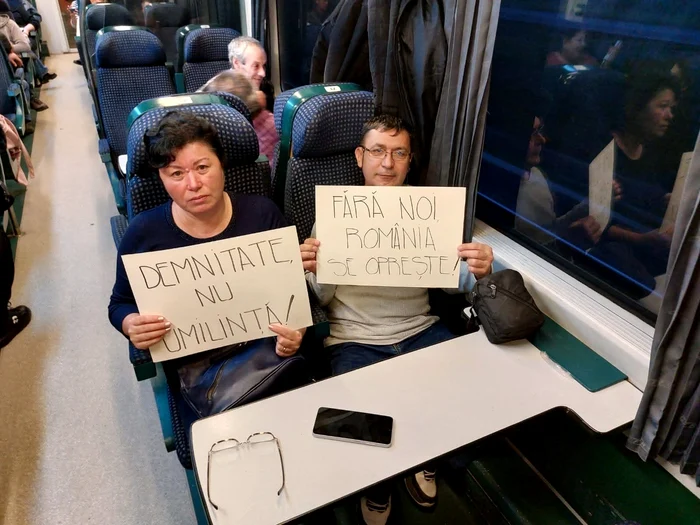 DEMNITATE,
NU
UMILINȚĂ!
FĂRĂ NOI,
ROMÂNIA
SE OPREȘTE!